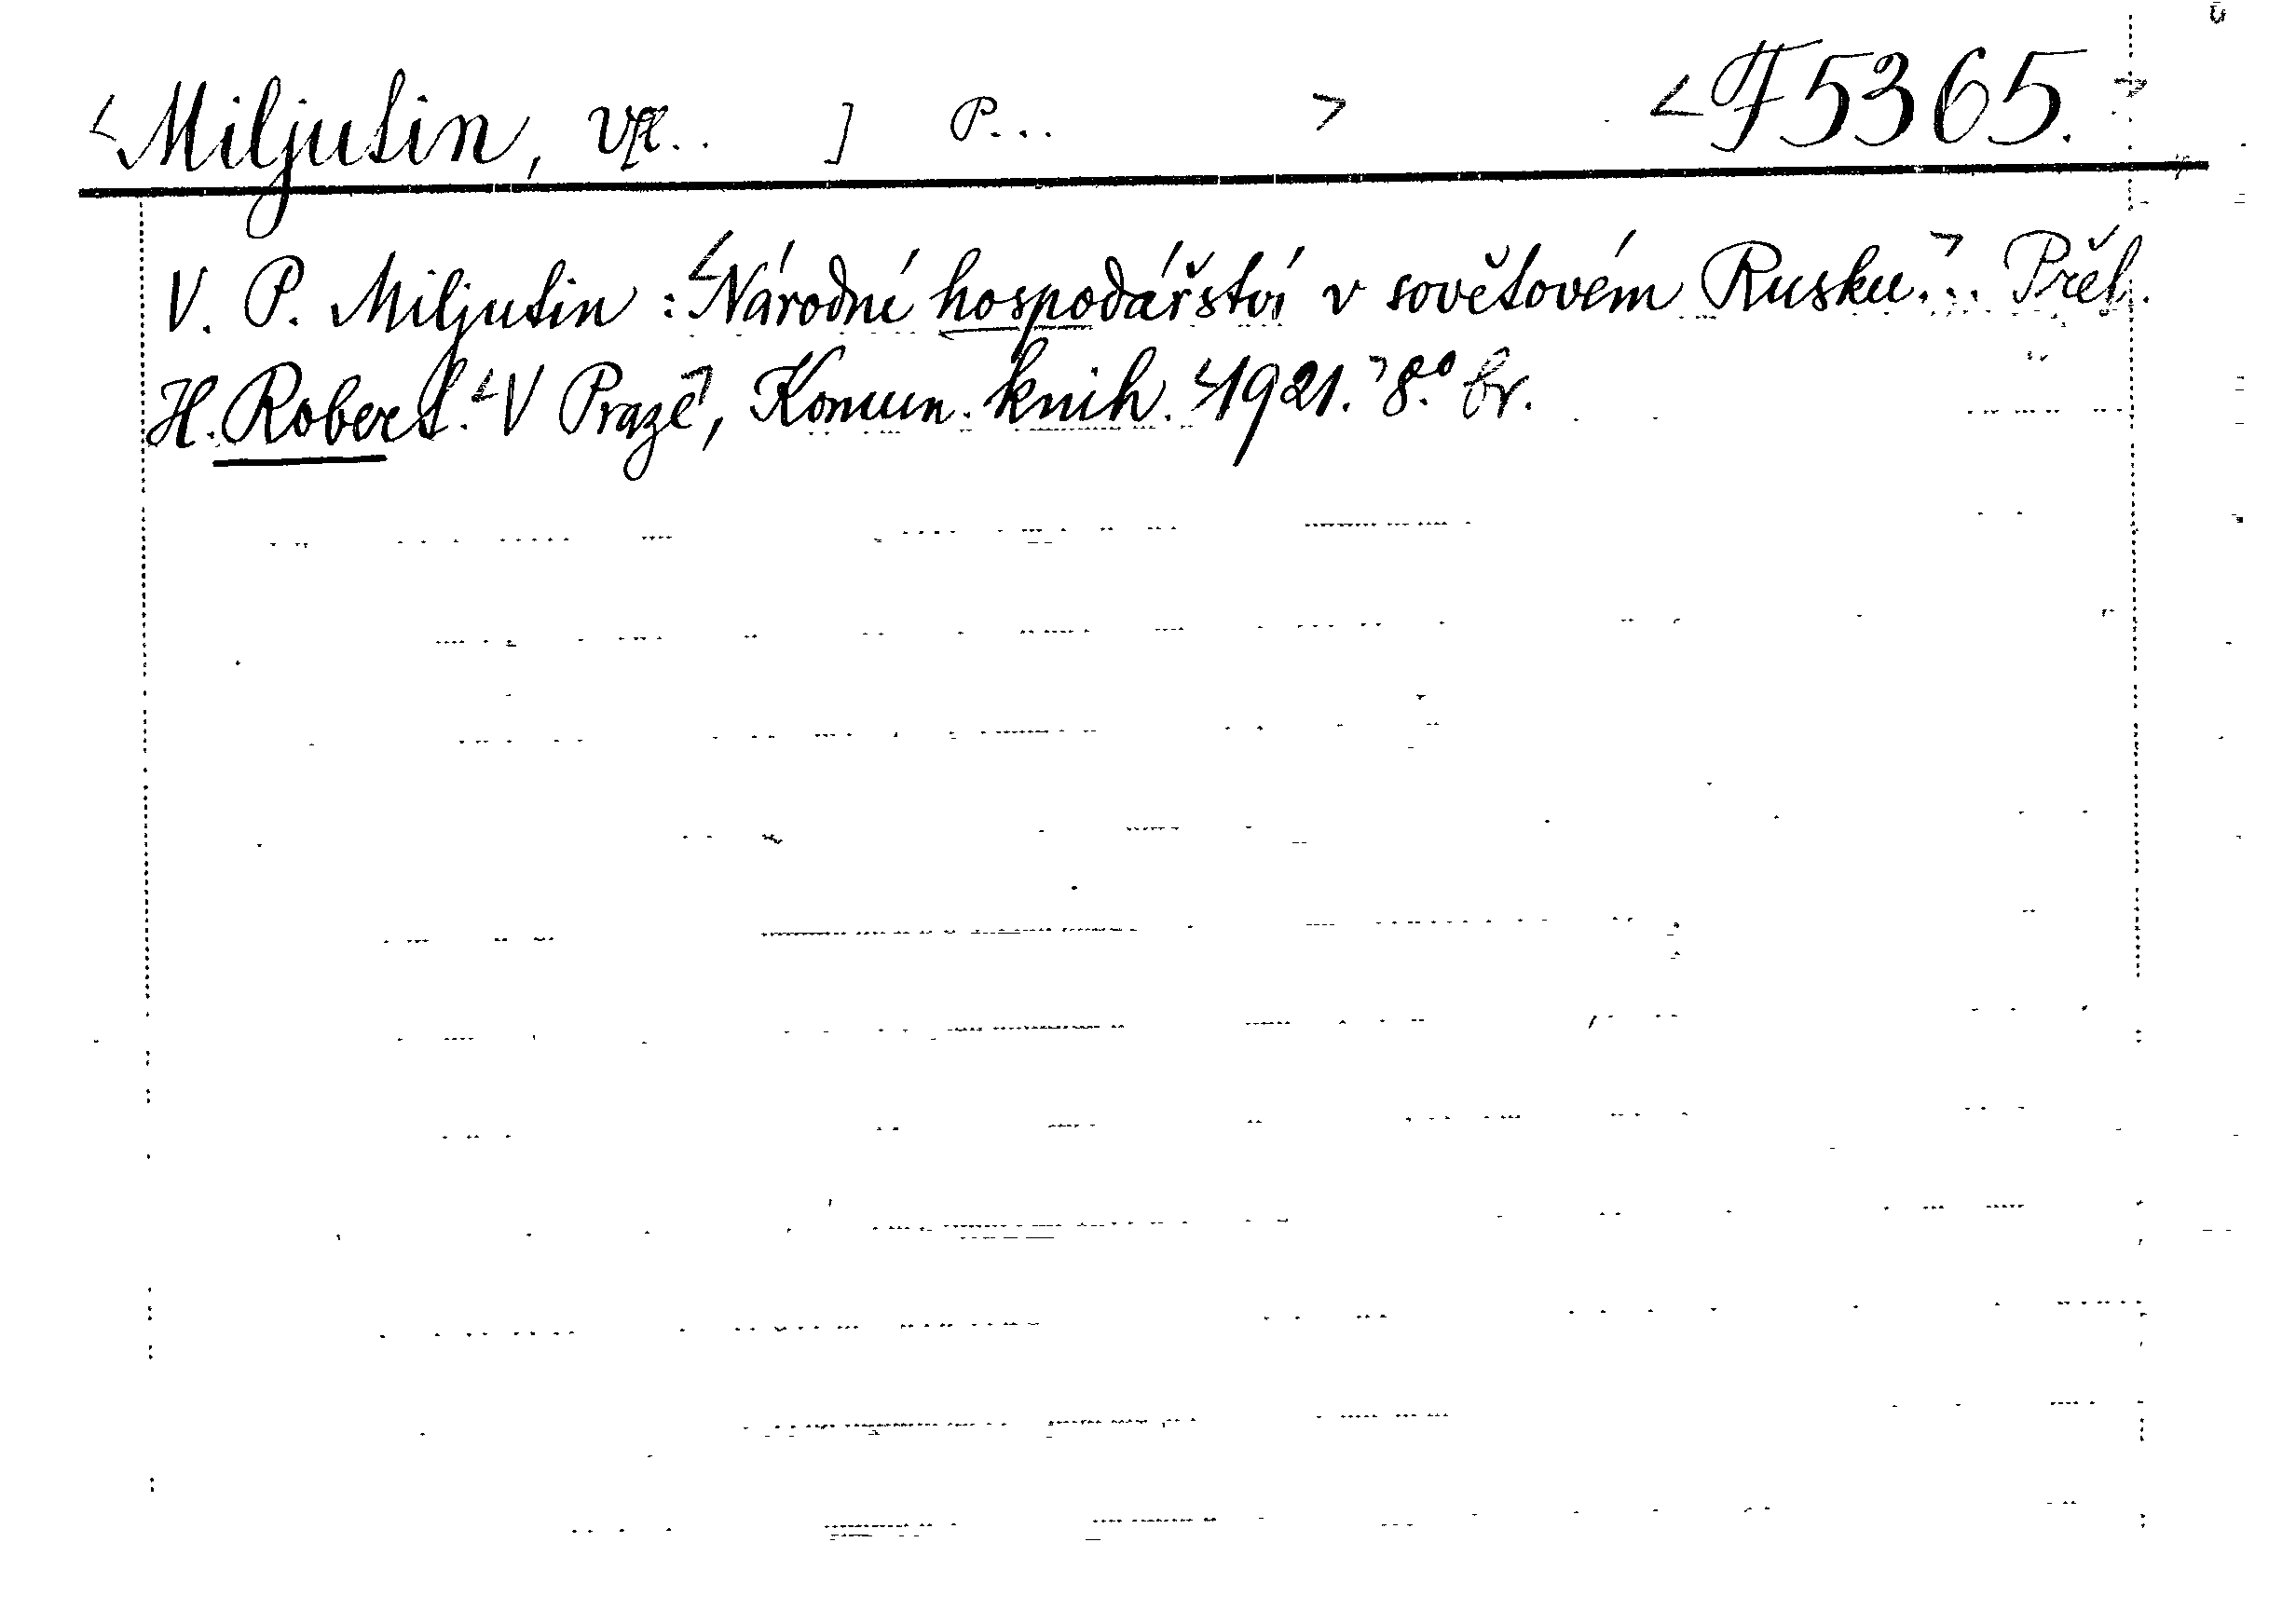 <Miljutin, Vl.. ] P... > <F 5365.>
V. P. Miljutin : <Národní hospodářství v sovětovém Rusku.>.. Přel.
H. Robert. <V Praze>, Komun. knih. <1921.> 8.° br.